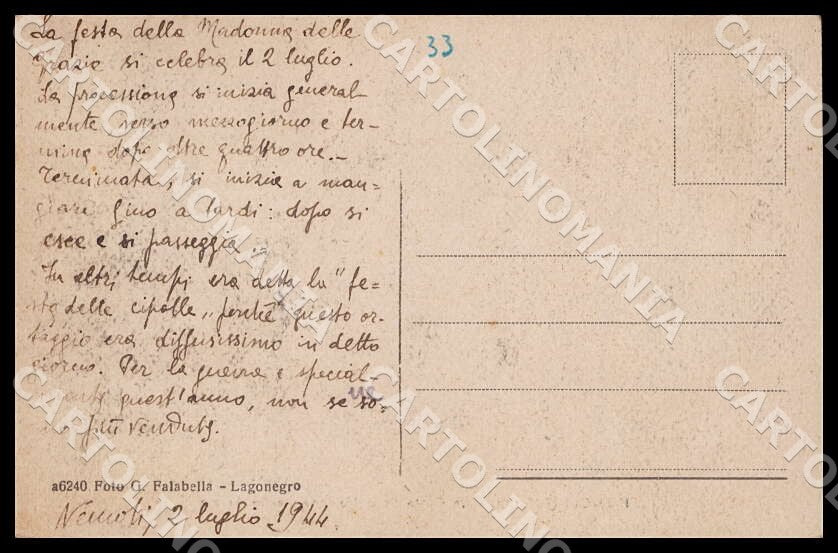 La festa della Madonna delle
Grazie si celebra il 2 luglio.
La processiong si inizia general-
mente verso mezzogiorno e ter-
ming dopo oltre quattro ore.-
Terminata, si inizia a man-
giare fino a tardi: dopo si
esce e si passeggia.
In altri tempi era detta la "fe=
sta delle cipolle„ perchè questo or-
taggio era diffusissimo in detto
giorno. Per la guerra e special-
mente quest'anno, non se so-
più
33
a6240 Foto G. Falabella - Lagonegro
Nemoli, 2 luglio 1944.
CARTOLINOMANIA